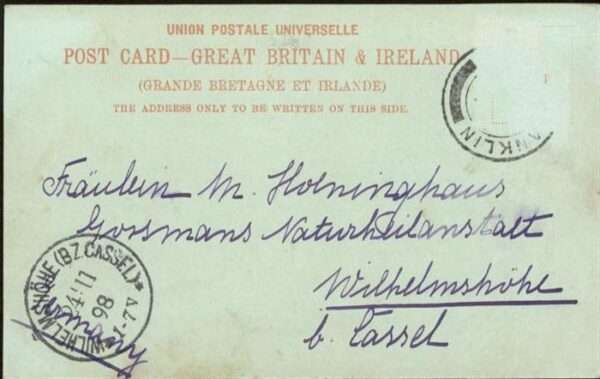 UNION POSTALE UNIVERSELLE
POST CARD—GREAT BRITAIN & IRELAND
(GRANDE BRETAGNE ET IRLANDE)
THE ADDRESS ONLY TO BE WRITTEN ON THIS SIDE.
ANKLIN
Fräulein M. Hoeninghaus
Gossmans Naturheilanstalt
Wilhelmshöhe
b. Cassel
Germany
WILHELMSHÖHE (BZ. CASSEL)
24.11
98
1-7V